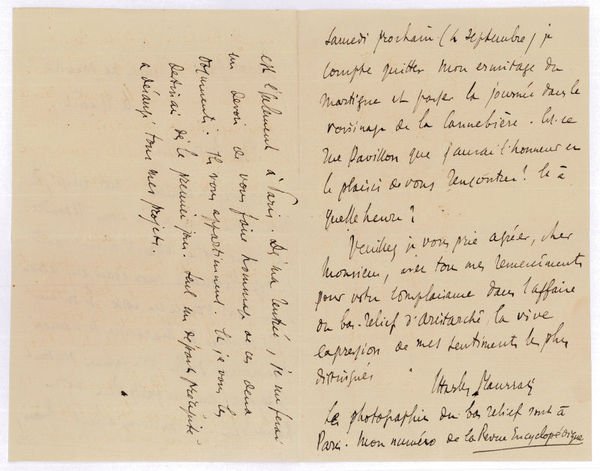 Samedi prochain (4 Septembre) je
compte quitter mon ermitage du
Martigue et passer la journée dans le
voisinage de la Cannebière. Est-ce
rue Pavillon que j'aurai l'honneur et
le plaisir de vous rencontrer? Et à
quelle heure?
Veuillez je vous prie agréer, cher
monsieur, avec tous mes remerciments
pour votre complaisance dans l'affaire
du bas-relief d'Aristarché, la vive
expression de mes sentiments les plus
distingués
Charles Maurras
La photographie du bas relief sont à
Paris. Mon numéro de la Revue Encyclopédique
est également à Paris. Dès ma rentrée, je me ferai
un devoir de vous faire hommage de ces deux
documents. Ils vous appartiennent. Et je vous les
destinai dès le premier jour. Seul un départ précipité
a dérangé tous mes projets.